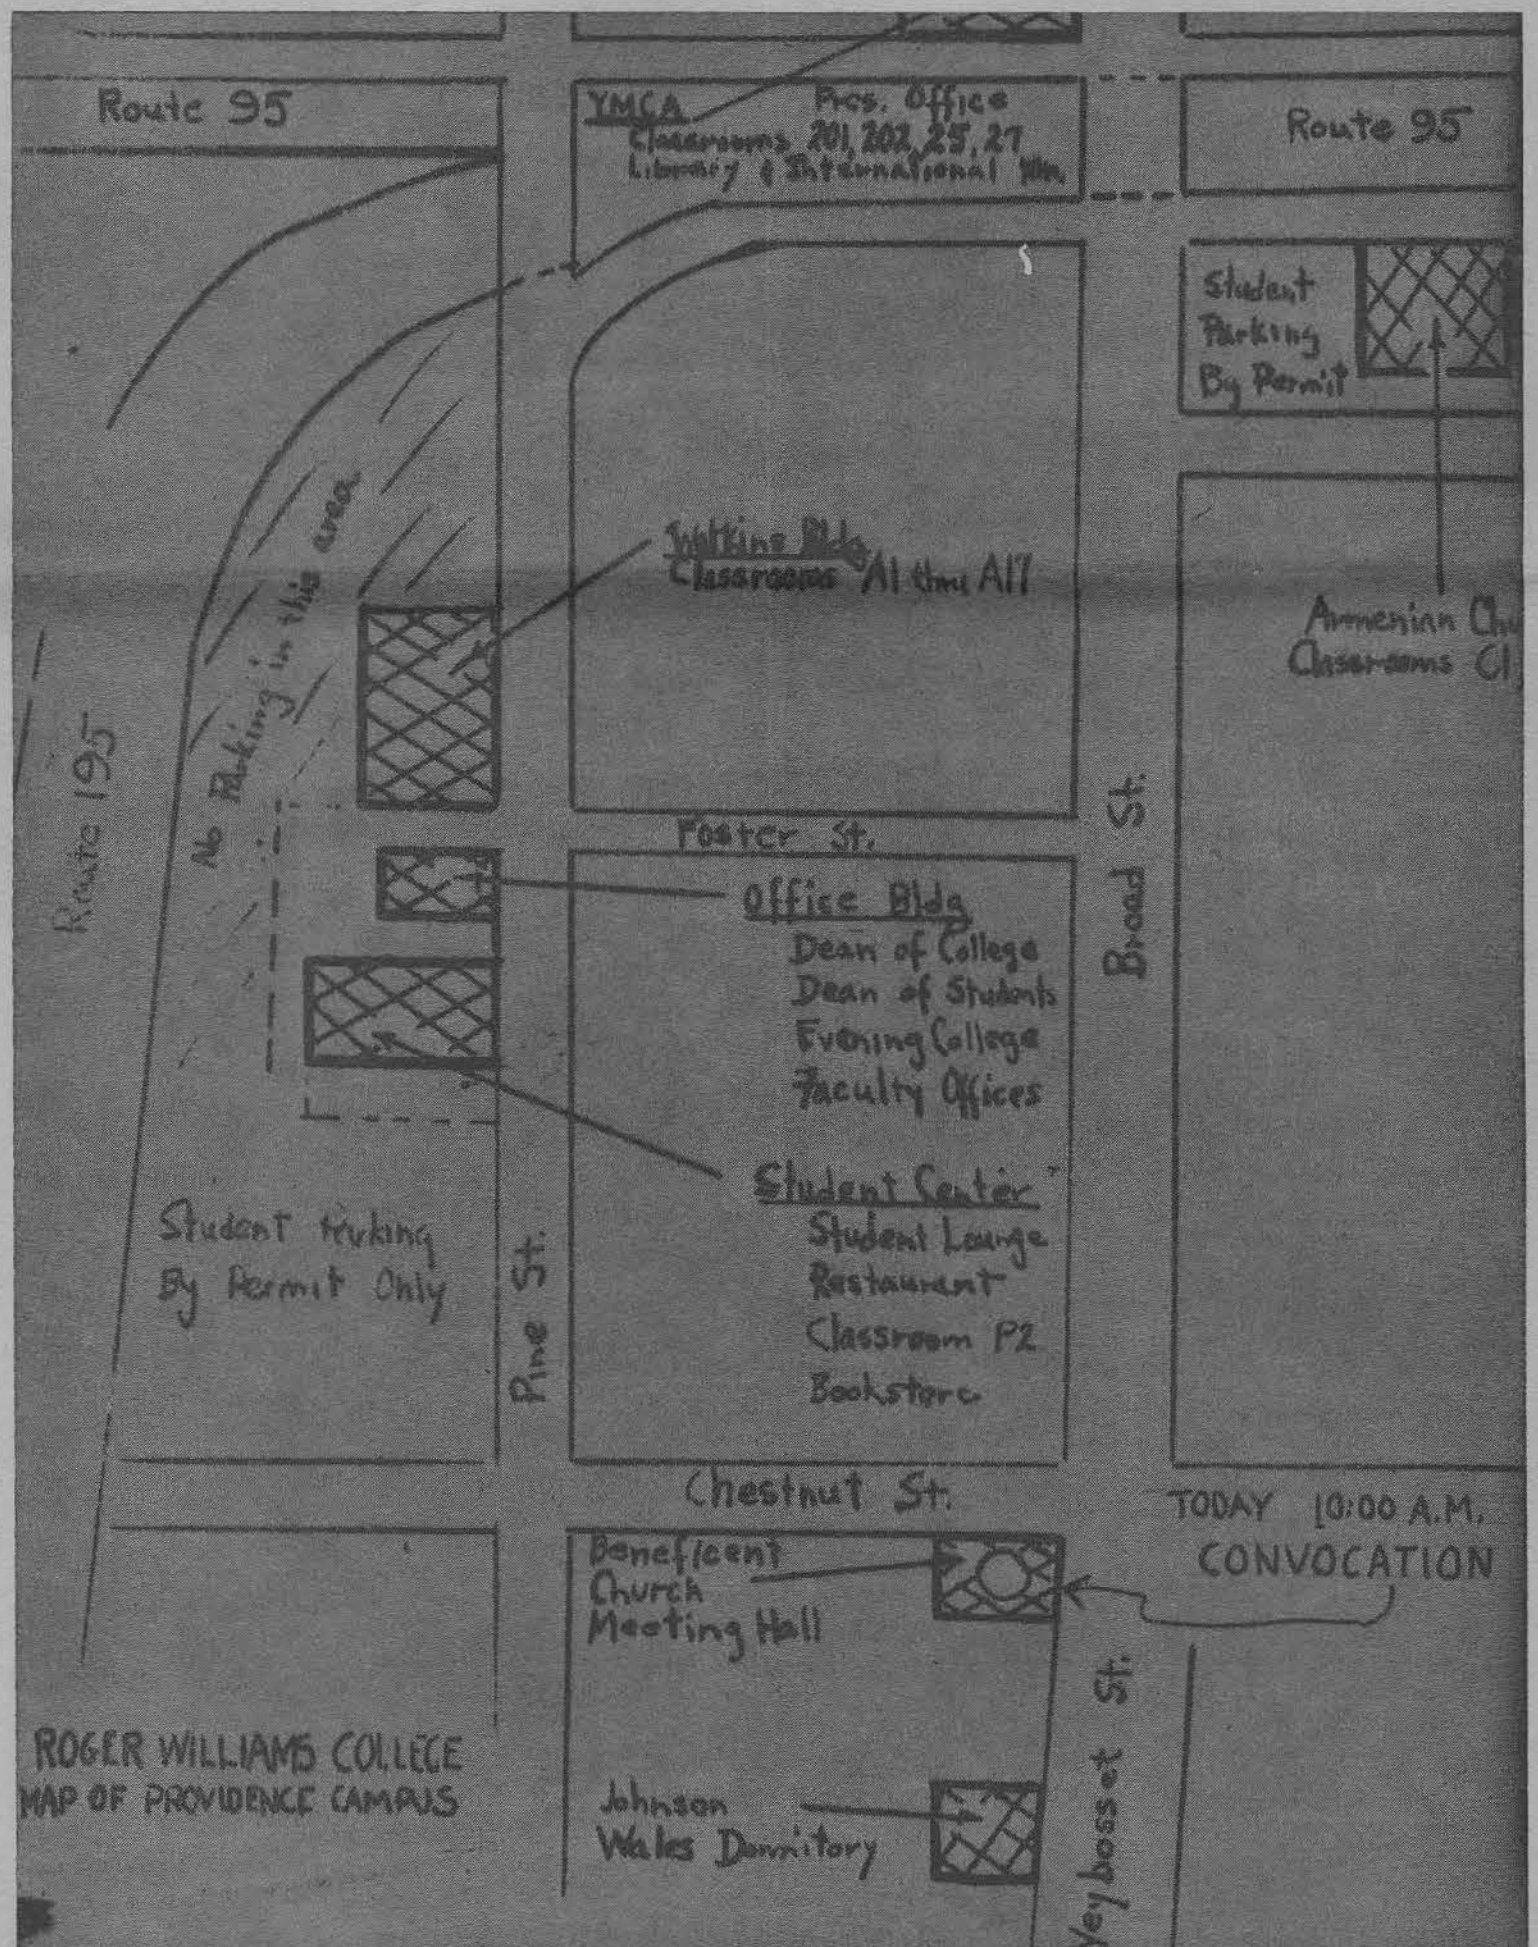 Route 95
YMCA Pres. Office
Classrooms 201, 202, 25, 27
Library & International Rm.
Route 95
Student
Parking
By Permit
Watkins Bldg
Classrooms A1 thru A17
No Parking in this area
Armenian
Classrooms C1
Route 195
Foster St.
Broad St.
Office Bldg
Dean of College
Dean of Students
Evening College
Faculty Offices
Student Center
Student Lounge
Restaurant
Classroom P2
Bookstore
Student Parking
By Permit Only
Pine St.
Chestnut St.
TODAY 10:00 A.M.
CONVOCATION
Beneficent
Church
Meeting Hall
Weybosset St.
ROGER WILLIAMS COLLEGE
MAP OF PROVIDENCE CAMPUS
Johnson
Wales Dormitory